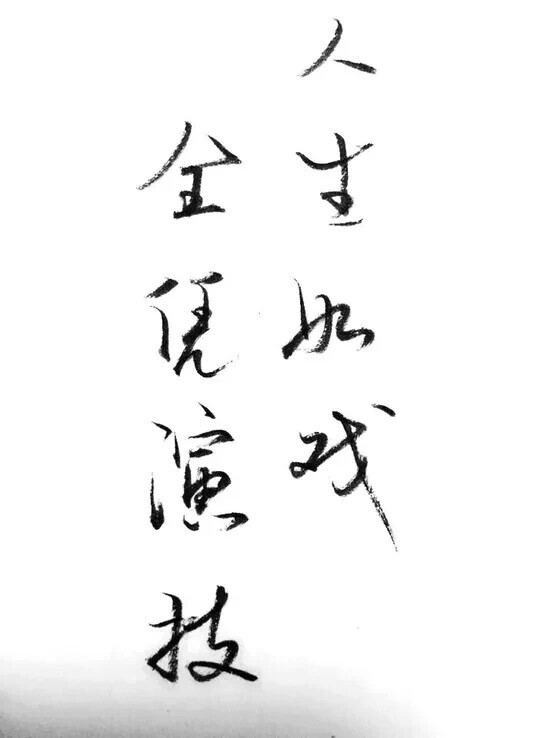 人生如戏
全凭演技